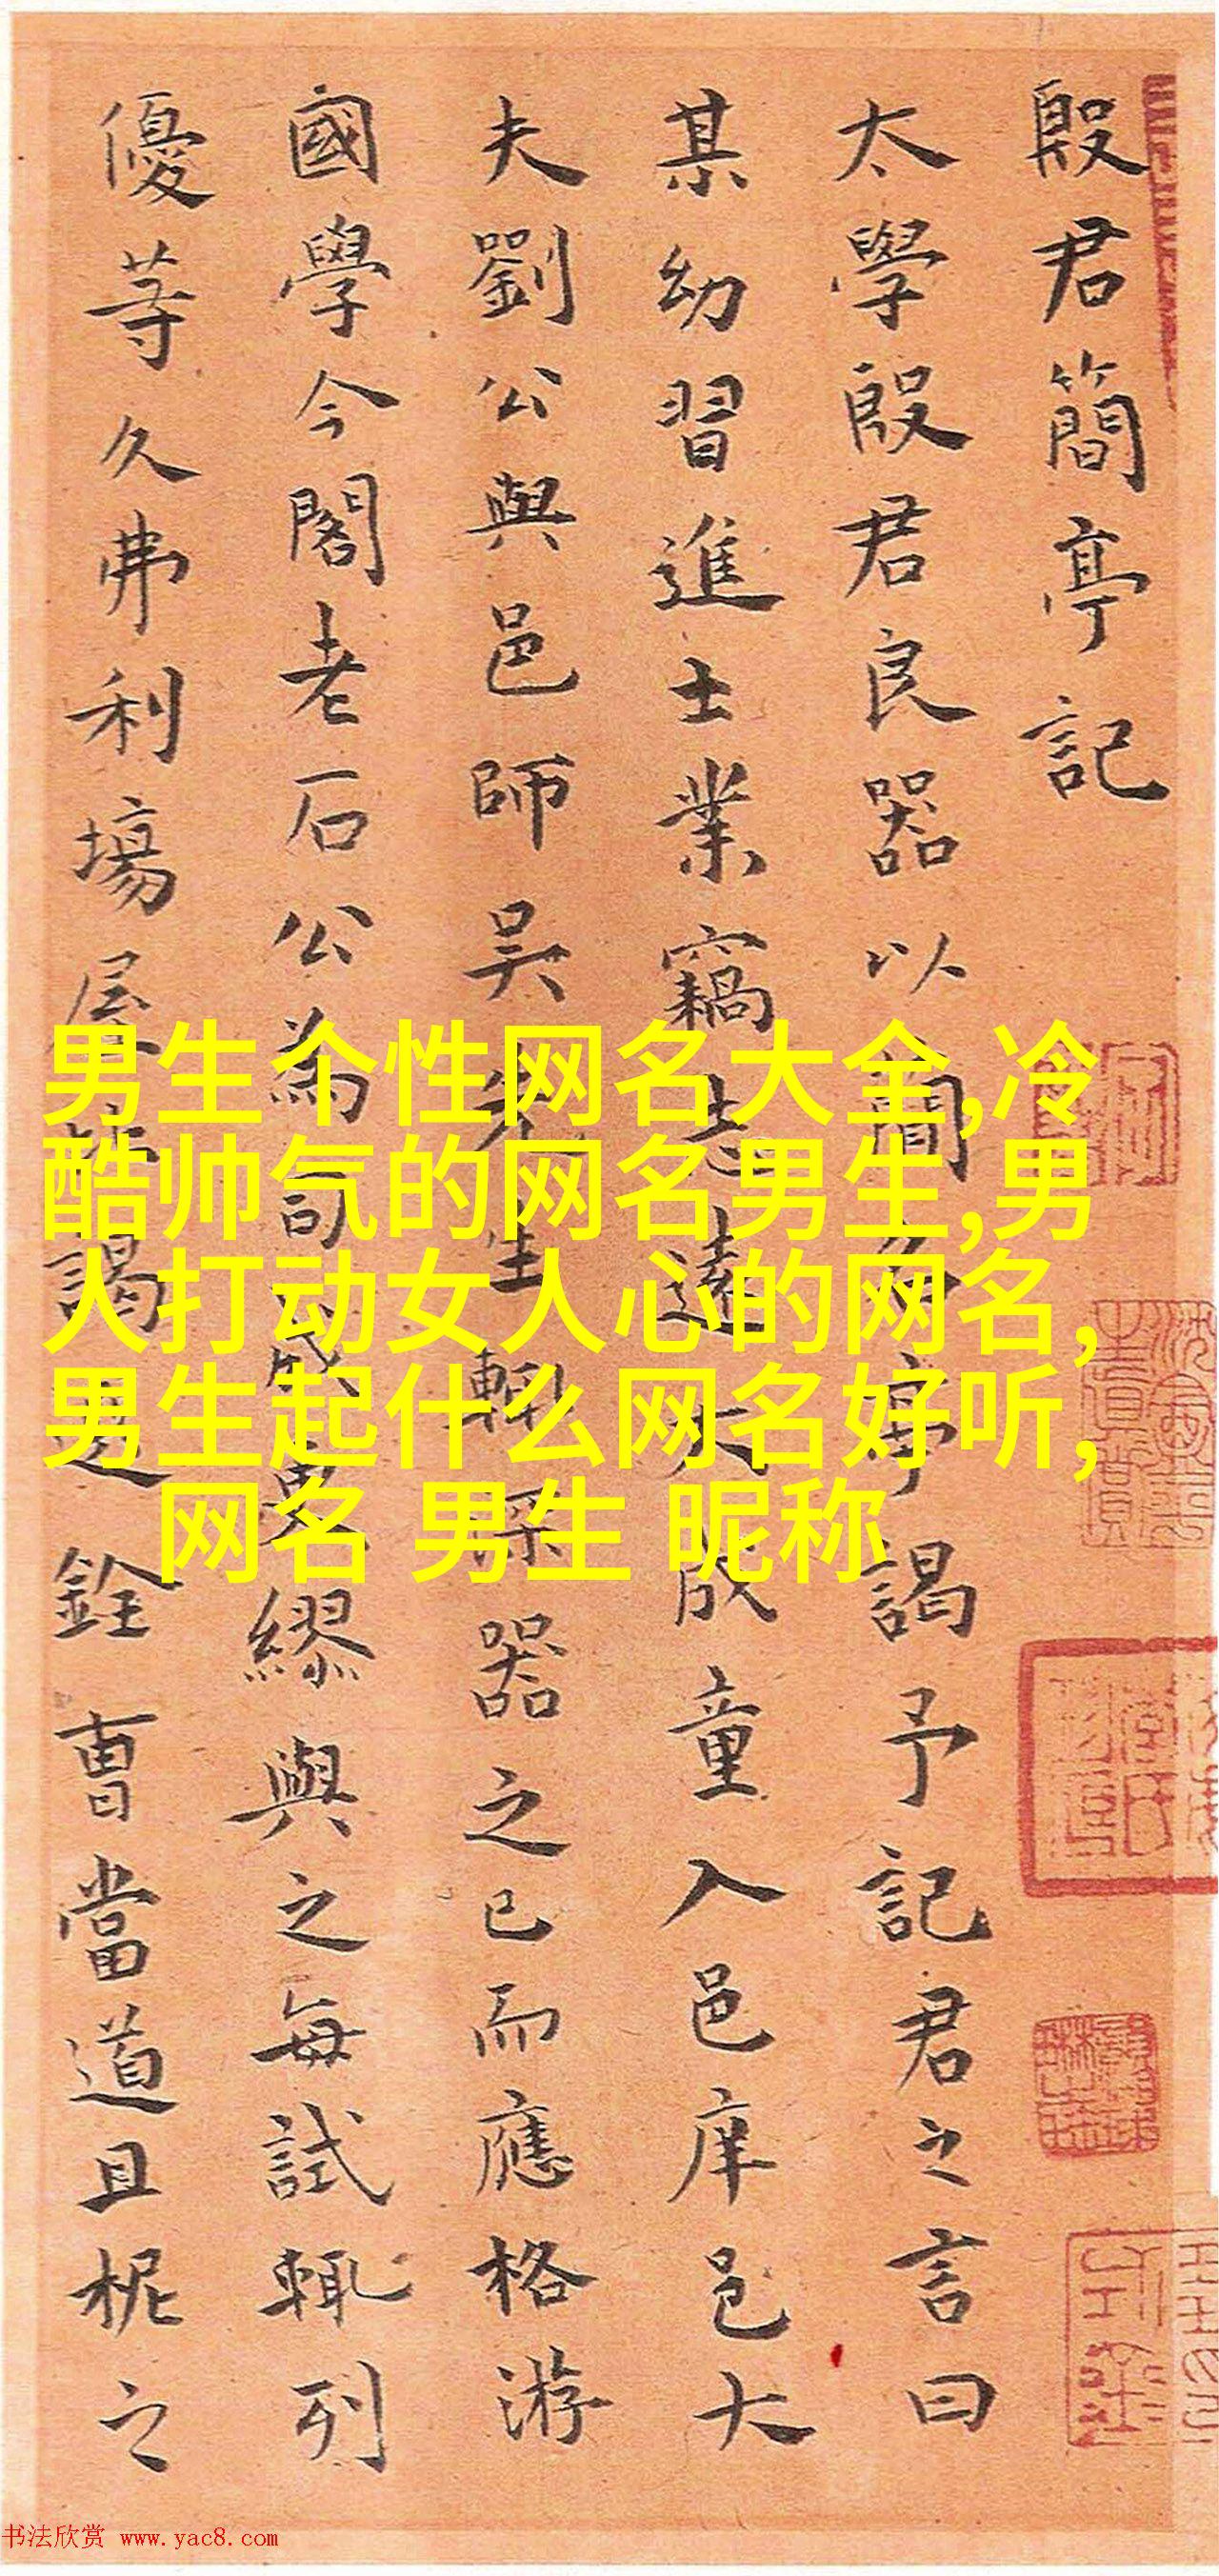 殷君簡亭記
太學殷君良器以簡名亭謁予記君之言曰
某幼習進士業竊志遠大成童入邑庠邑大
夫劉公與邑師吳先生輒深器之已而應格游
國學今閣老石公為司成累繆與之每試輒列
優等久弗利場屋
謁選銓曹當道且柅之
男生个性网名大全,冷
酷帅气的网名男生,男
人打动女人心的网名,
男生起什么网名好听,
网名 男生 昵称
书法欣赏 www.yac8.com